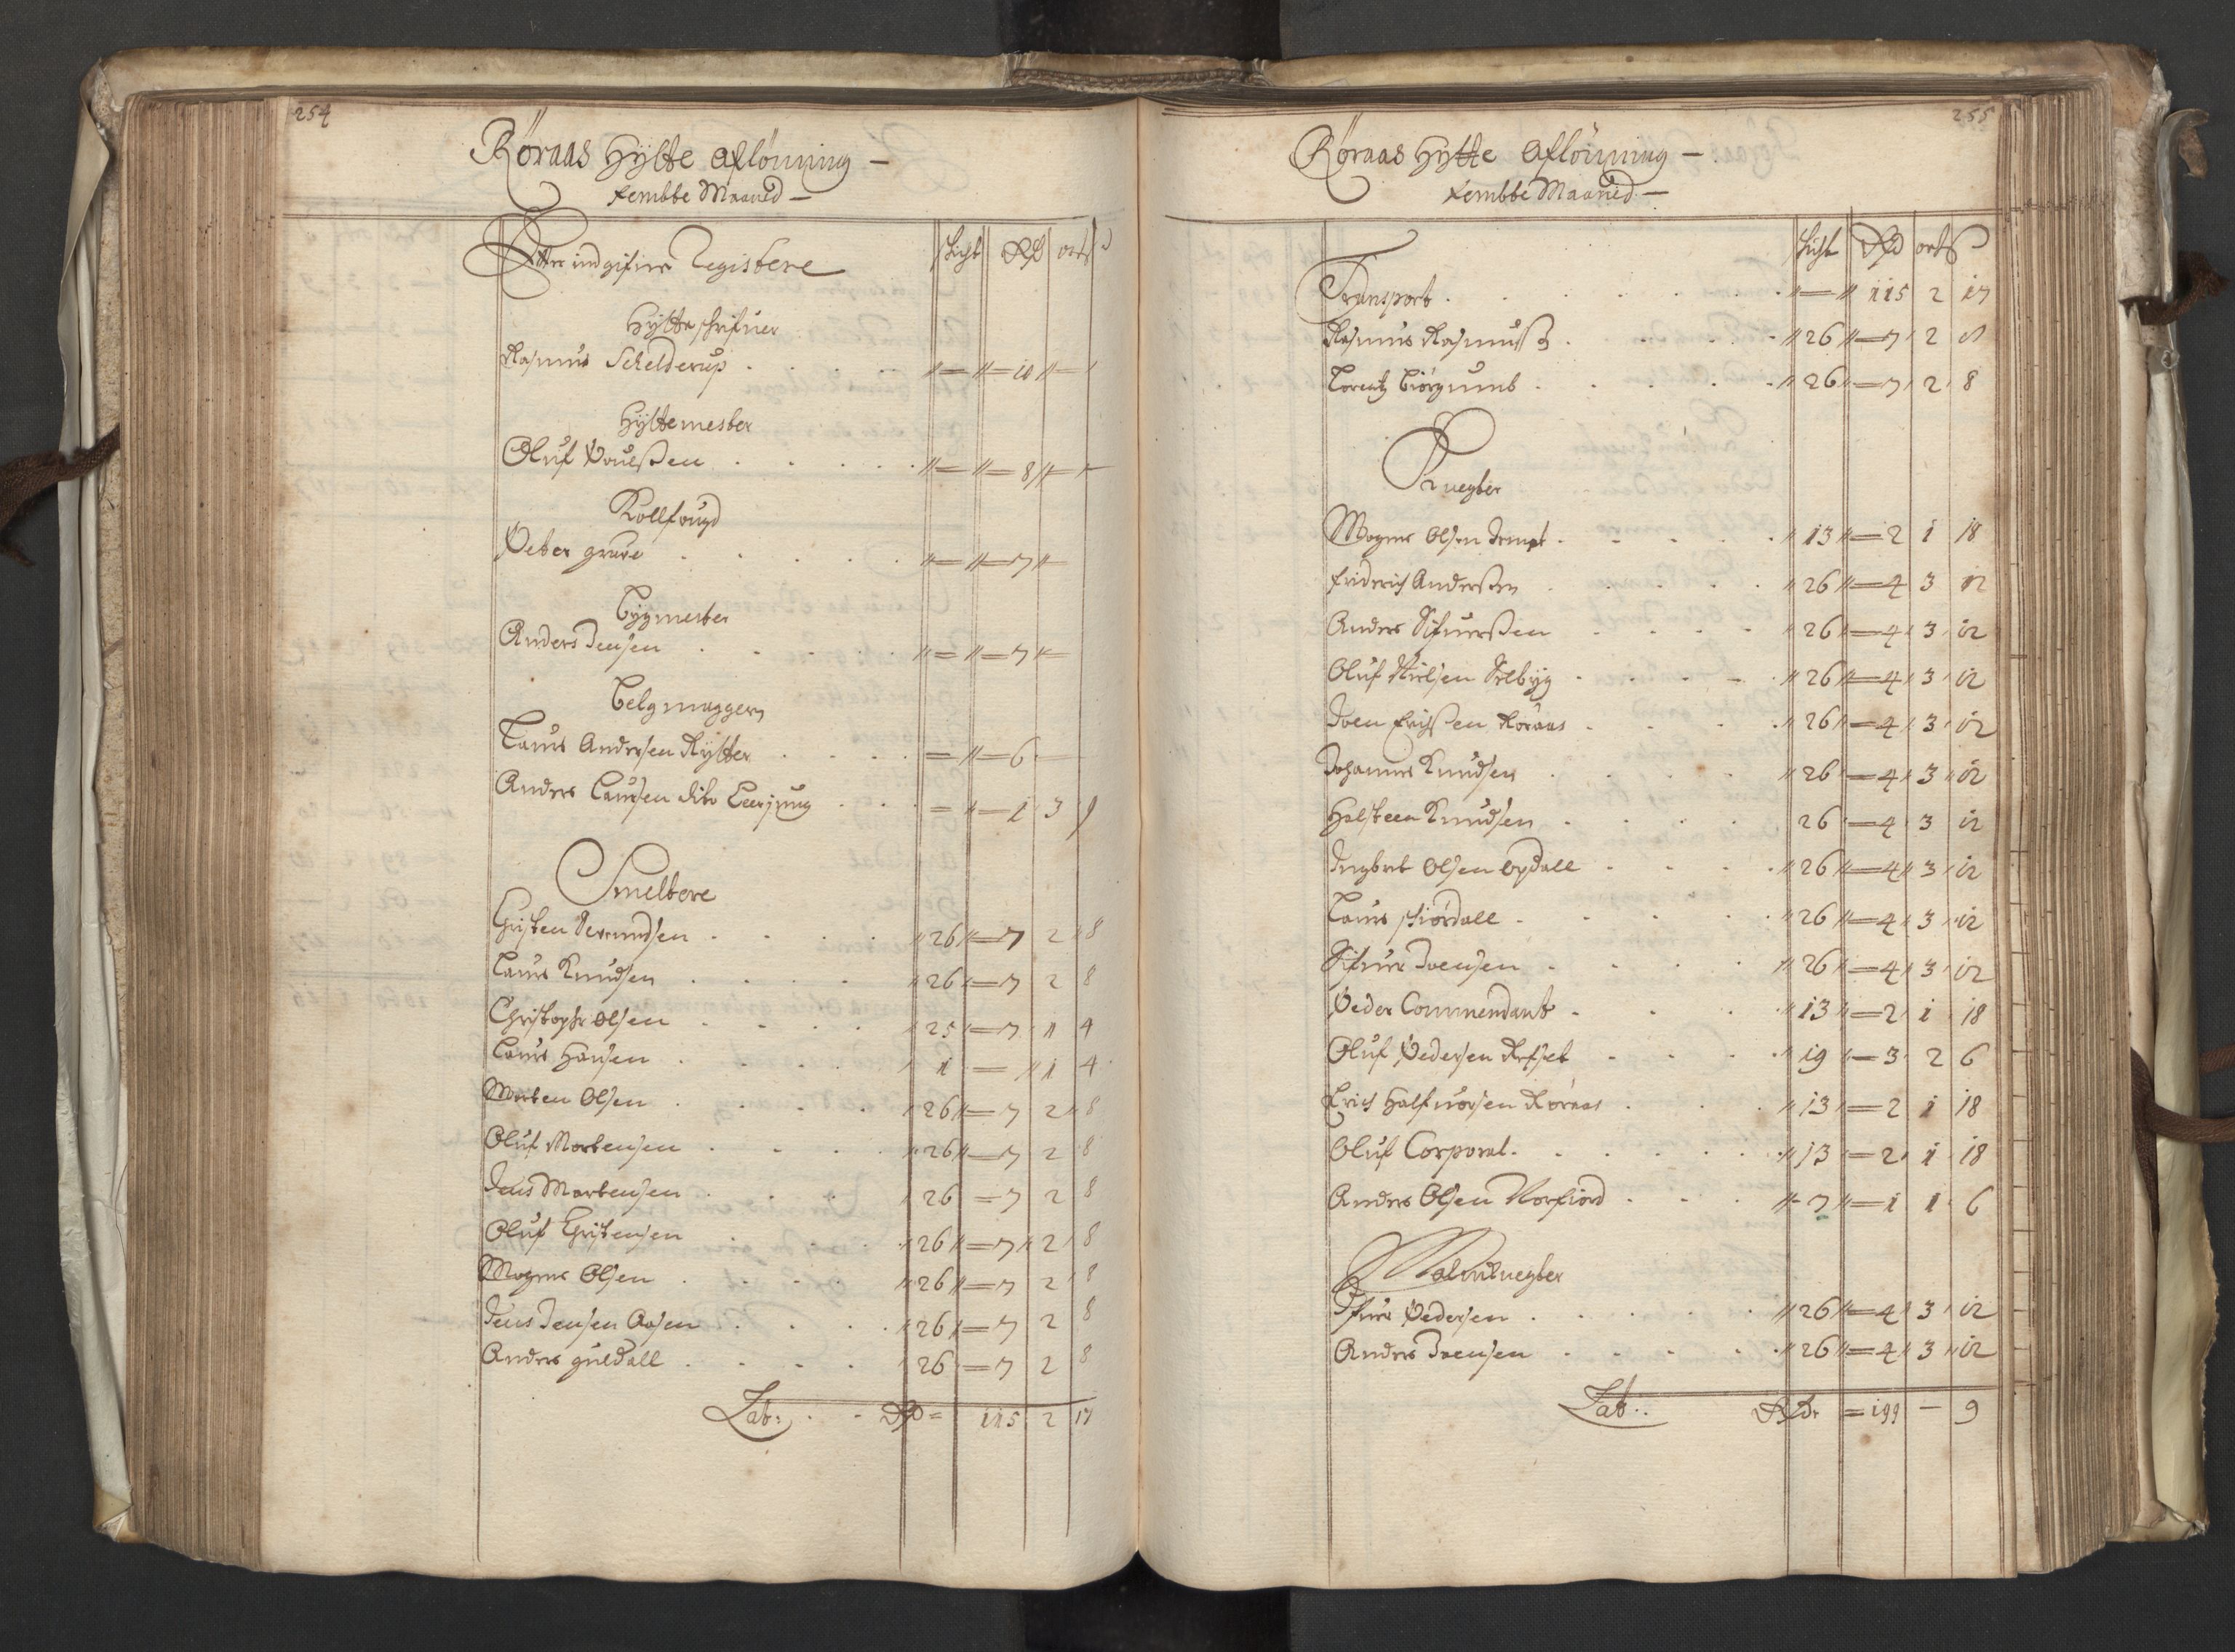 254
Röraas Hÿtte Aflönning –
fembte Maaned –
Efter indgifner Registere
Schicht Rd ort s
Hÿtteschrifuer
Rasmus Schelderup . . . . " – " – 10 " –
Hÿttemester
Oluf Poulßen . . . . . " – " – 8 " –
Kollfougd
Peter grave . . . . " – " – 7 " –
Bygmester
Anders Jensen . . . . " – " – 7 " –
Belgmagger
Laurs Andersen Rytter . . . . – " – 6 –
Anders Laursen dito Leerjung . . . – " – 1 3 9
Smeltere
Christen Seermundsen . . . . " 26 " – 7 2 " 8
Laurs Knudsen . . . . " 26 " – 7 2 8
Christopher Olsen . . . . " 25 " – 7 1 4
Laurs Hansen . . . . " 1 – " 1 4
Morten Olsen . . . . " 26 " – 7 2 " 8
Oluf Mortensen . . . . " 26 " – 7 2 8
Jens Mortensen . . . . 26 – 7 2 8
Oluf Christensen . . . . " 26 " – 7 " 2 8
Mogens Olsen . . . . " 26 " – 7 2 8
Jens Jensen Aasen . . . . " 26 " – 7 2 8
Anders guldall . . . . 26 – 7 2 8
Lat: . - Rd = 115 2 17
255
Röraas Hytte Aflönning –
fembte Maaned –
Schicht Rd ort s
Transport . . . . . . " – " 115 2 17
Rasmus Rasmusß . . . . . " 26 " – 7 2 8
Lorentz Biörnumb . . . . . " 26 " – 7 2 8
Knegter
Mogens Olsen . . . . . " 13 " – 2 1 18
Friderich Anderßen . . . . " 26 " – 4 3 12
Anders Sifuerßen . . . . " 26 " – 4 3 12
Oluf Nielsen Selbyg . . . . " 26 " – 4 3 12
Joen Erichßen Röraas . . . . " 26 " – 4 3 12
Johannes Knudsen . . . . " 26 " – 4 3 12
Halsteen Knudsen . . . . 26 – 4 3 12
Ingebret Olsen Opdall . . . . " 26 " – 4 3 12
Laurs Stiördall . . . . . " 26 " – 4 3 12
Sifuer Joensen . . . . " 26 " – 4 3 12
Peder Commendant . . . . " 13 " – 2 1 18
Oluf Pedersen Refset . . . . " 19 " – 3 2 6
Erich Halfuorsen Röraas . . . " 13 " – 2 1 18
Oluf Corporal . . . . . . " 13 – 2 1 18
Anders Olsen Norfiord . . . " – 7 " – 1 1 6
Malmknegter
Ifuer Pedersen . . . . . " 26 " – 4 3 12
Anders Joensen . . . . . " 26 " – 4 3 12
Lat: . Rdr = 199 – 9